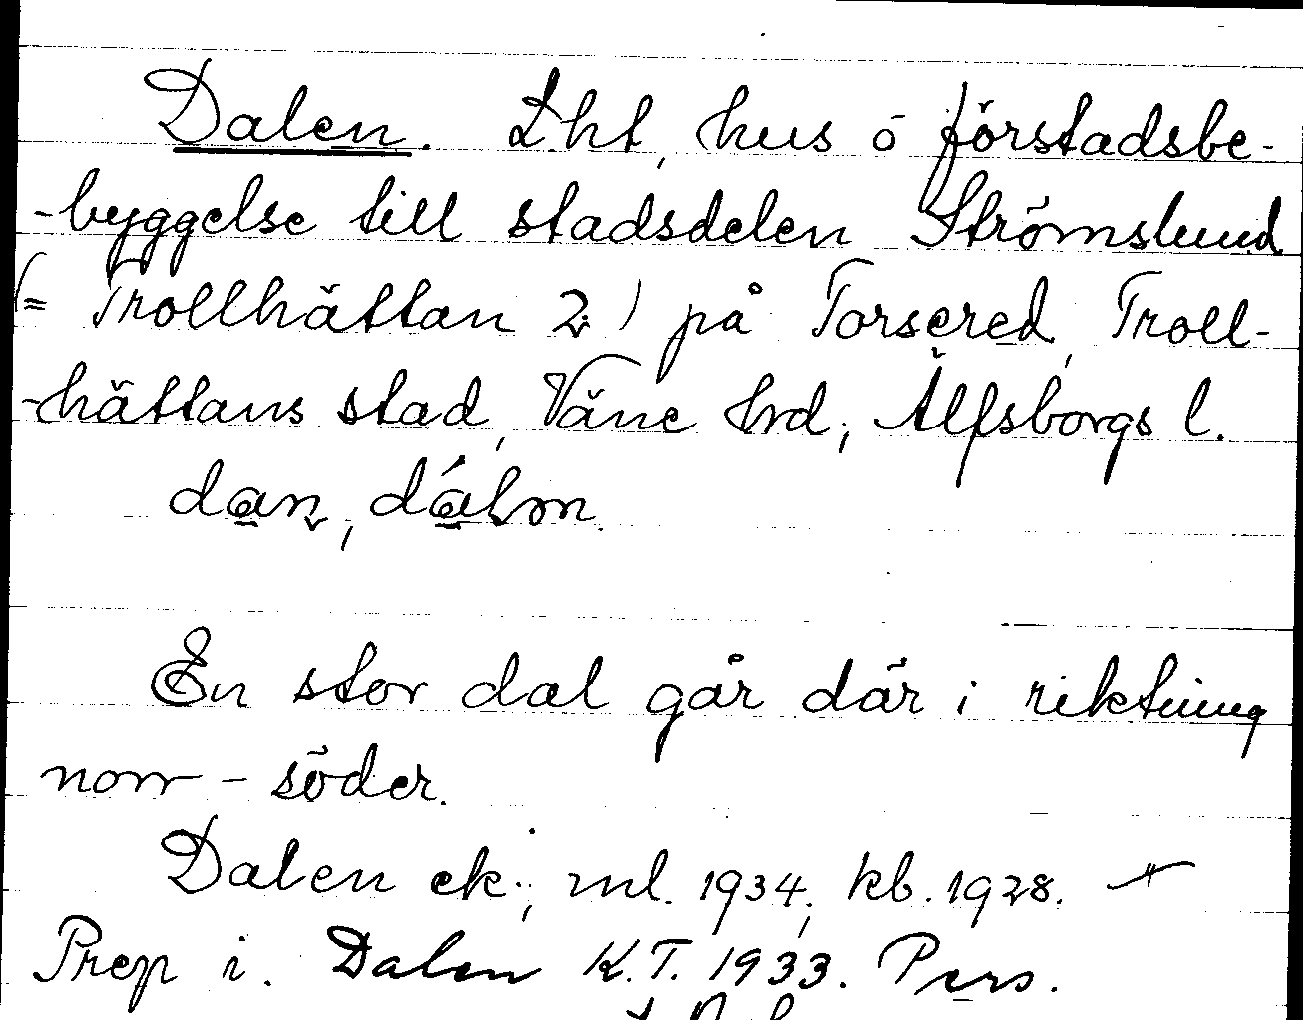 Dalen. Lht, hus o förstadsbe-
-byggelse till stadsdelen Strömslund
(= Trollhättan 2) på Torsered, Troll-
-hättans stad, Väne hrd, Älfsborgs l.
dan, dáln.
En stor dal går där i riktning
norr - söder.
Dalen ek., ml. 1934, kb. 1928.
Prep i. Dalen K.T. 1933. Pers.